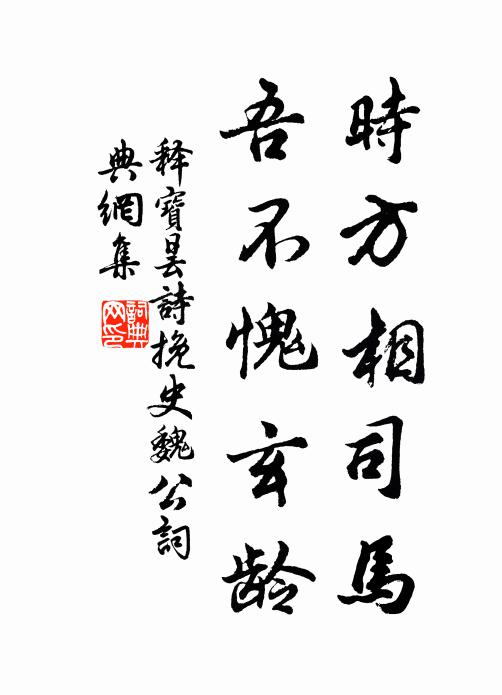 時方相司馬
吾不愧玄龄
释寶曇詩挽史魏公詞
典網集
詞典
网印